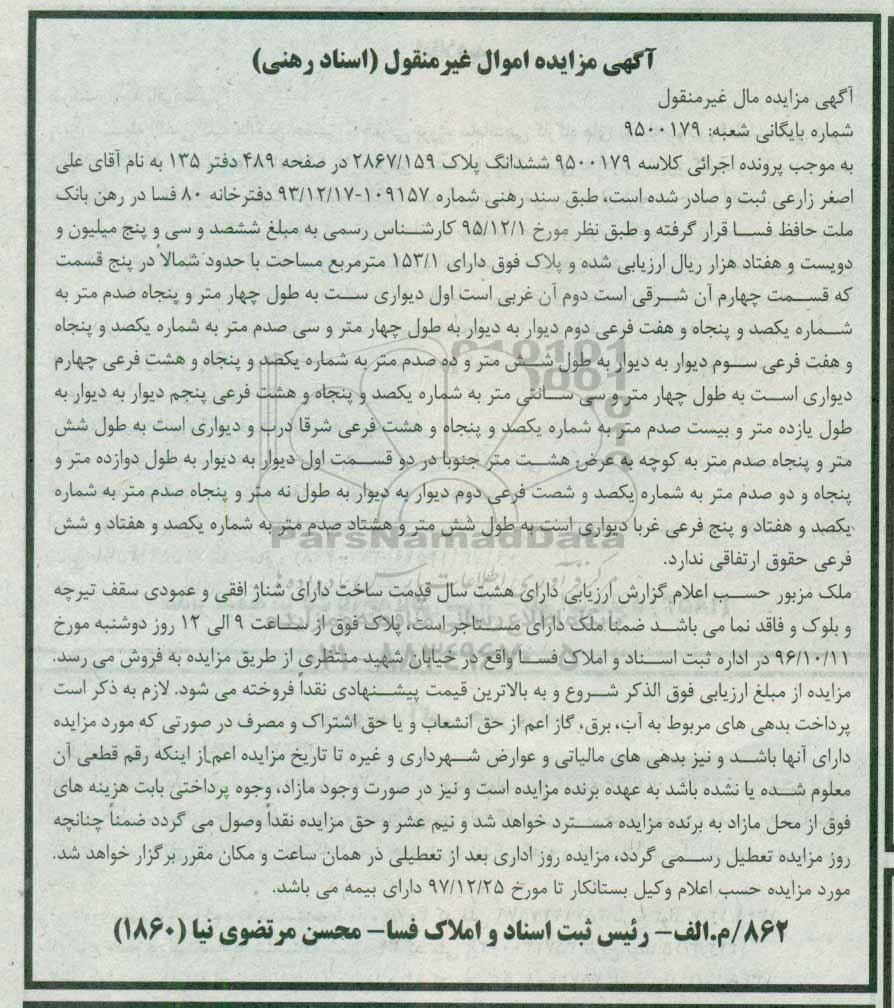 آگهی مزایده اموال غیرمنقول (اسناد رهنی)
آگهی مزایده مال غیرمنقول
شماره بایگانی شعبه: ۹۵۰۰۱۷۹
به موجب پرونده اجرائی کلاسه ۹۵۰۰۱۷۹ ششدانگ پلاک ۲۸۶۷/۱۵۹ در صفحه ۴۸۹ دفتر ۱۳۵ به نام آقای علی
اصغر زارعی ثبت و صادر شده است، طبق سند رهنی شماره ۱۰۹۱۵۷-۹۳/۱۲/۱۷ دفترخانه ۸۰ فسا در رهن بانک
ملت حافظ فسا قرار گرفته و طبق نظر مورخ ۹۵/۱۲/۱ کارشناس رسمی به مبلغ ششصد و سی و پنج میلیون و
دویست و هفتاد هزار ریال ارزیابی شده و پلاک فوق دارای ۱۵۳/۱ مترمربع مساحت با حدود شمالاً در پنج قسمت
که قسمت چهارم آن شرقی است دوم آن غربی است اول دیواری ست به طول چهار متر و پنجاه صدم متر به
شماره یکصد و پنجاه و هفت فرعی دوم دیوار به دیوار به طول چهار متر و سی صدم متر به شماره یکصد و پنجاه
و هفت فرعی سوم دیوار به دیوار به طول شش متر و ده صدم متر به شماره یکصد و پنجاه و هشت فرعی چهارم
دیواری است به طول چهار متر و سی سانتی متر به شماره یکصد و پنجاه و هشت فرعی پنجم دیوار به دیوار به
طول یازده متر و بیست صدم متر به شماره یکصد و پنجاه و هشت فرعی شرقا درب و دیواری است به طول شش
متر و پنجاه صدم متر به کوچه به عرض هشت متر جنوبا در دو قسمت اول دیوار به دیوار به طول دوازده متر و
پنجاه و دو صدم متر به شماره یکصد و شصت فرعی دوم دیوار به دیوار به طول نه متر و پنجاه صدم متر به شماره
یکصد و هفتاد و پنج فرعی غربا دیواری است به طول شش متر و هشتاد صدم متر به شماره یکصد و هفتاد و شش
فرعی حقوق ارتفاقی ندارد.
ملک مزبور حسب اعلام گزارش ارزیابی دارای هشت سال قدمت ساخت دارای شناژ افقی و عمودی سقف تیرچه
و بلوک و فاقد نما می باشد ضمنا ملک دارای مستاجر است، پلاک فوق از ساعت ۹ الی ۱۲ روز دوشنبه مورخ
۹۶/۱۰/۱۱ در اداره ثبت اسناد و املاک فسا واقع در خیابان شهید منتظری از طریق مزایده به فروش می رسد.
مزایده از مبلغ ارزیابی فوق الذکر شروع و به بالاترین قیمت پیشنهادی نقداً فروخته می شود. لازم به ذکر است
پرداخت بدهی های مربوط به آب، برق، گاز اعم از حق انشعاب و یا حق اشتراک و مصرف در صورتی که مورد مزایده
دارای آنها باشد و نیز بدهی های مالیاتی و عوارض شهرداری و غیره تا تاریخ مزایده اعم از اینکه رقم قطعی آن
معلوم شده یا نشده باشد به عهده برنده مزایده است و نیز در صورت وجود مازاد، وجوه پرداختی بابت هزینه های
فوق از محل مازاد به برنده مزایده مسترد خواهد شد و نیم عشر و حق مزایده نقداً وصول می گردد ضمناً چنانچه
روز مزایده تعطیل رسمی گردد، مزایده روز اداری بعد از تعطیلی در همان ساعت و مکان مقرر برگزار خواهد شد.
مورد مزایده حسب اعلام وکیل بستانکار تا مورخ ۹۷/۱۲/۲۵ دارای بیمه می باشد.
۸۶۲/م.الف- رئیس ثبت اسناد و املاک فسا- محسن مرتضوی نیا (۱۸۶۰)
ParsNamadData